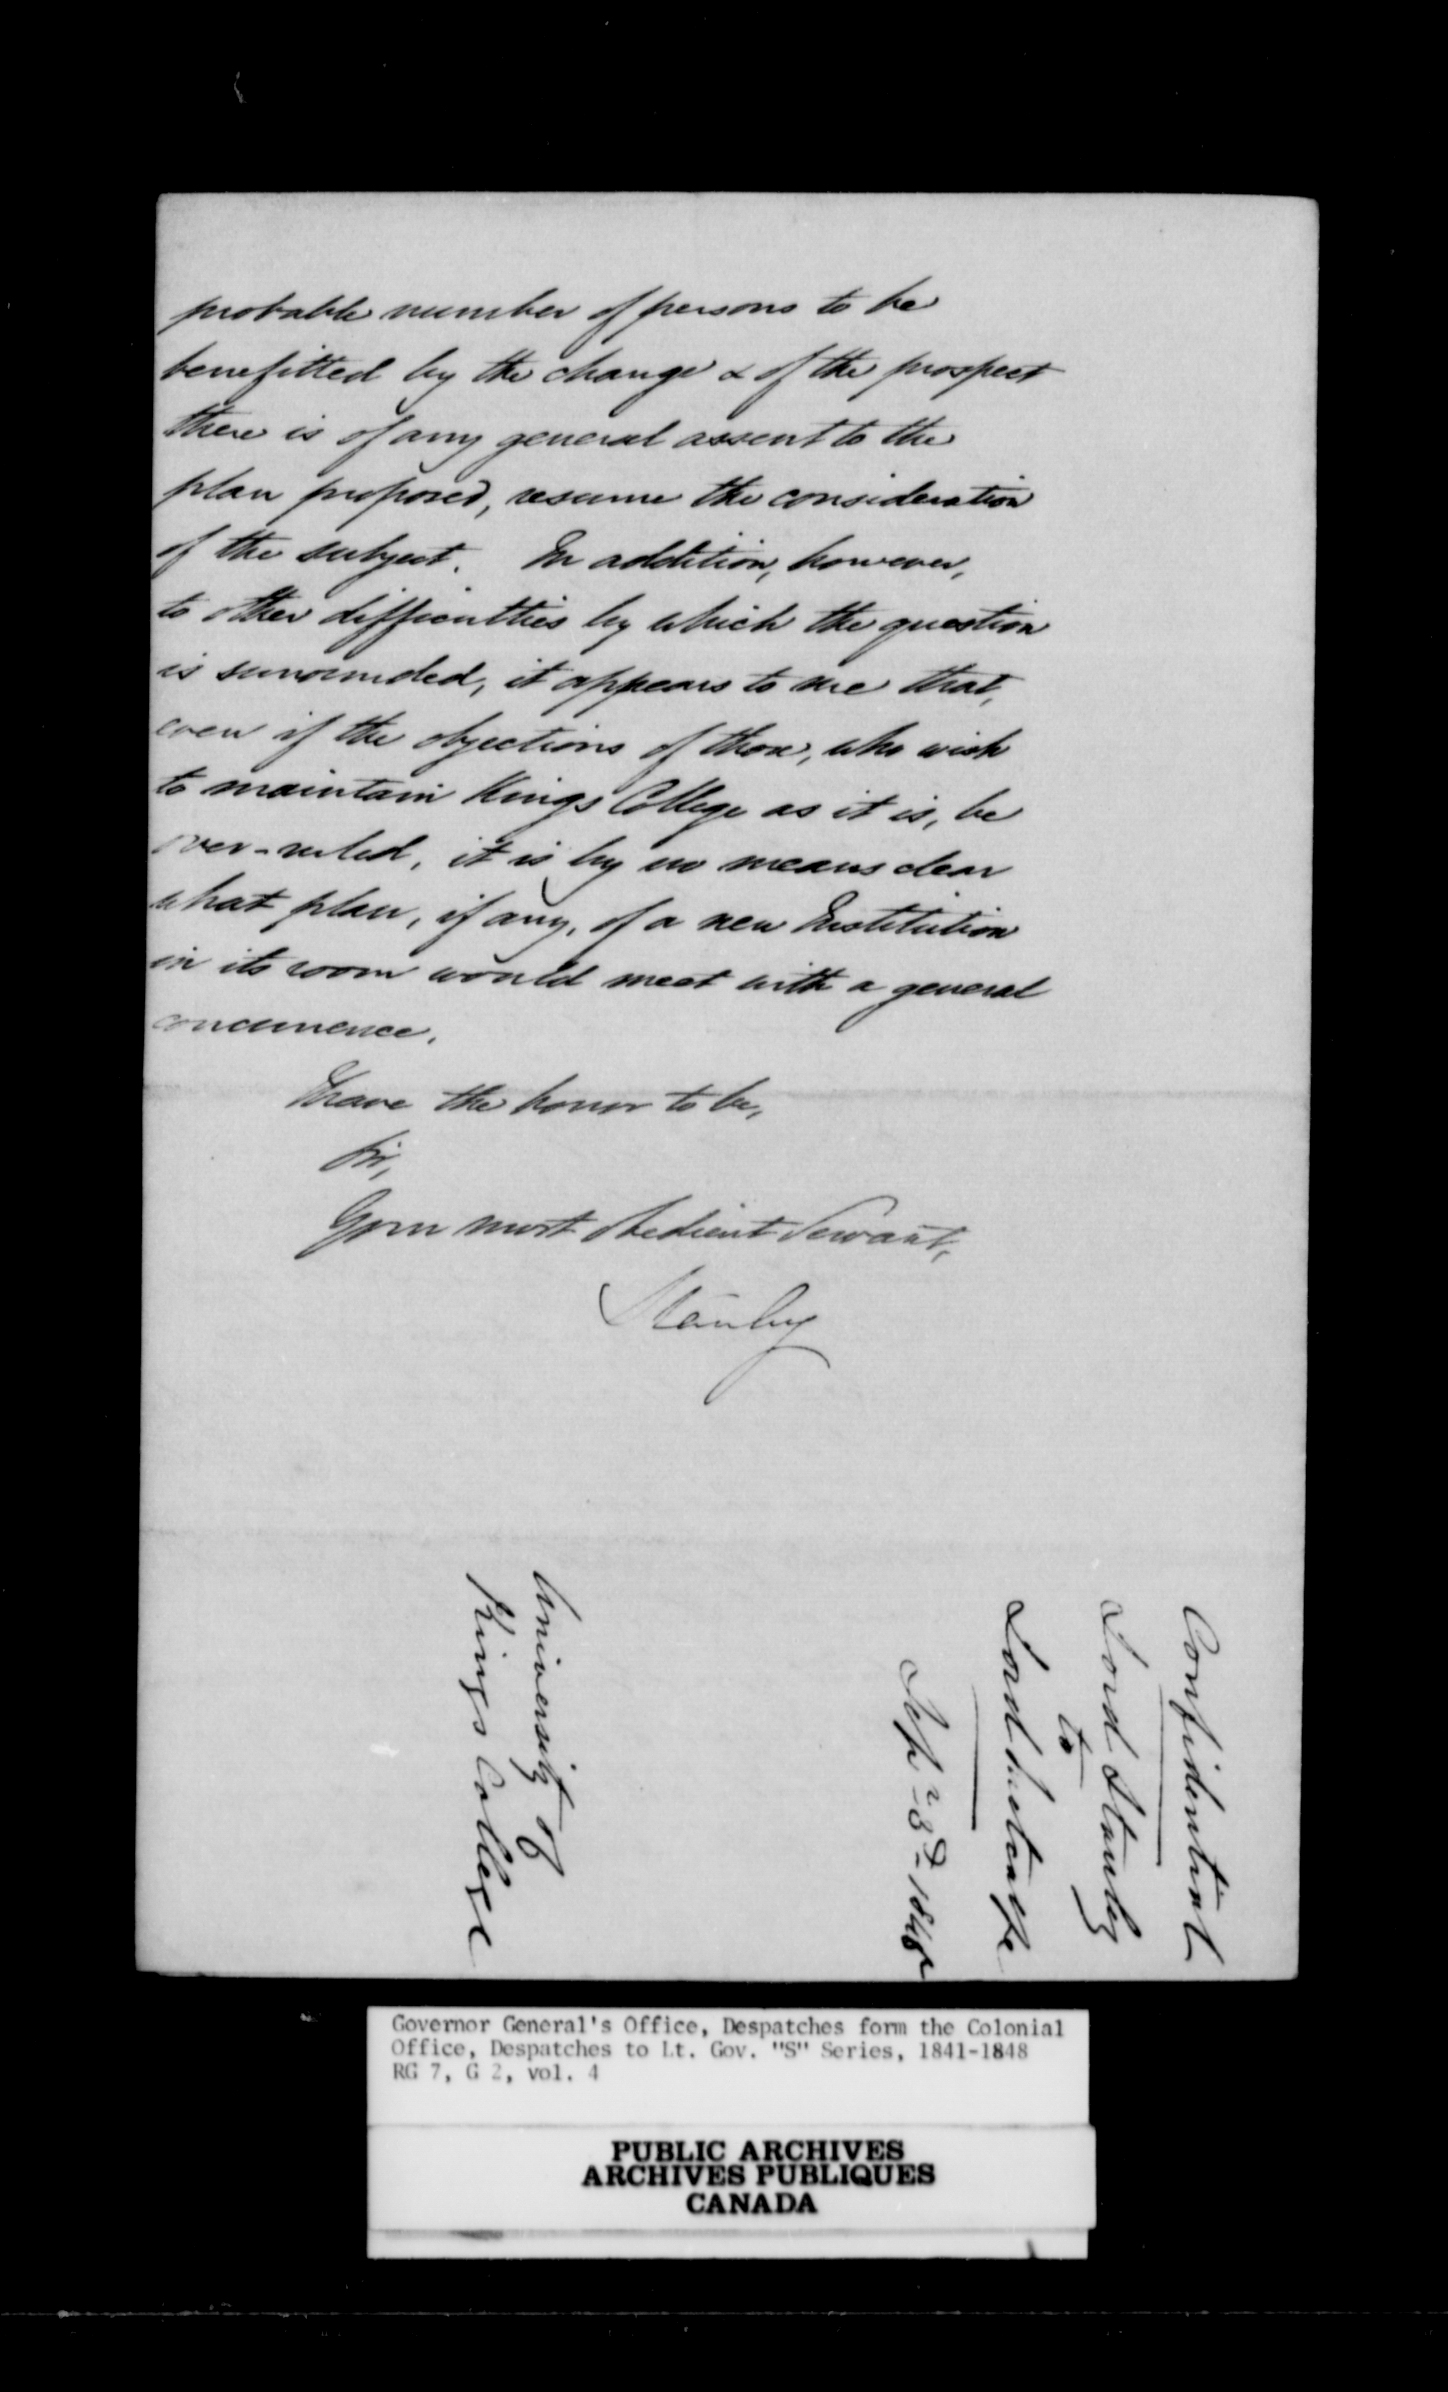 probable number of persons to be
benefitted by the change & of the prospect
there is of any general assent to the
plan proposed, resume the consideration
of the subject. In addition, however,
to other difficulties by which the question
is surrounded, it appears to me that,
even if the objections of those, who wish
to maintain Kings College as it is, be
over-ruled, it is by no means clear
what plan, if any, of a new Institution
in its room would meet with a general
concurrence.
I have the honor to be,
Sir,
Your most obedient Servant,
Stanley
Confidential
Lord Stanley
to
Lord Metcalfe
Sepr 3d 1845
University of
Kings College
Governor General's Office, Despatches form the Colonial
Office, Despatches to Lt. Gov. "S" Series, 1841-1848
RG 7, G 2, vol. 4
PUBLIC ARCHIVES
ARCHIVES PUBLIQUES
CANADA